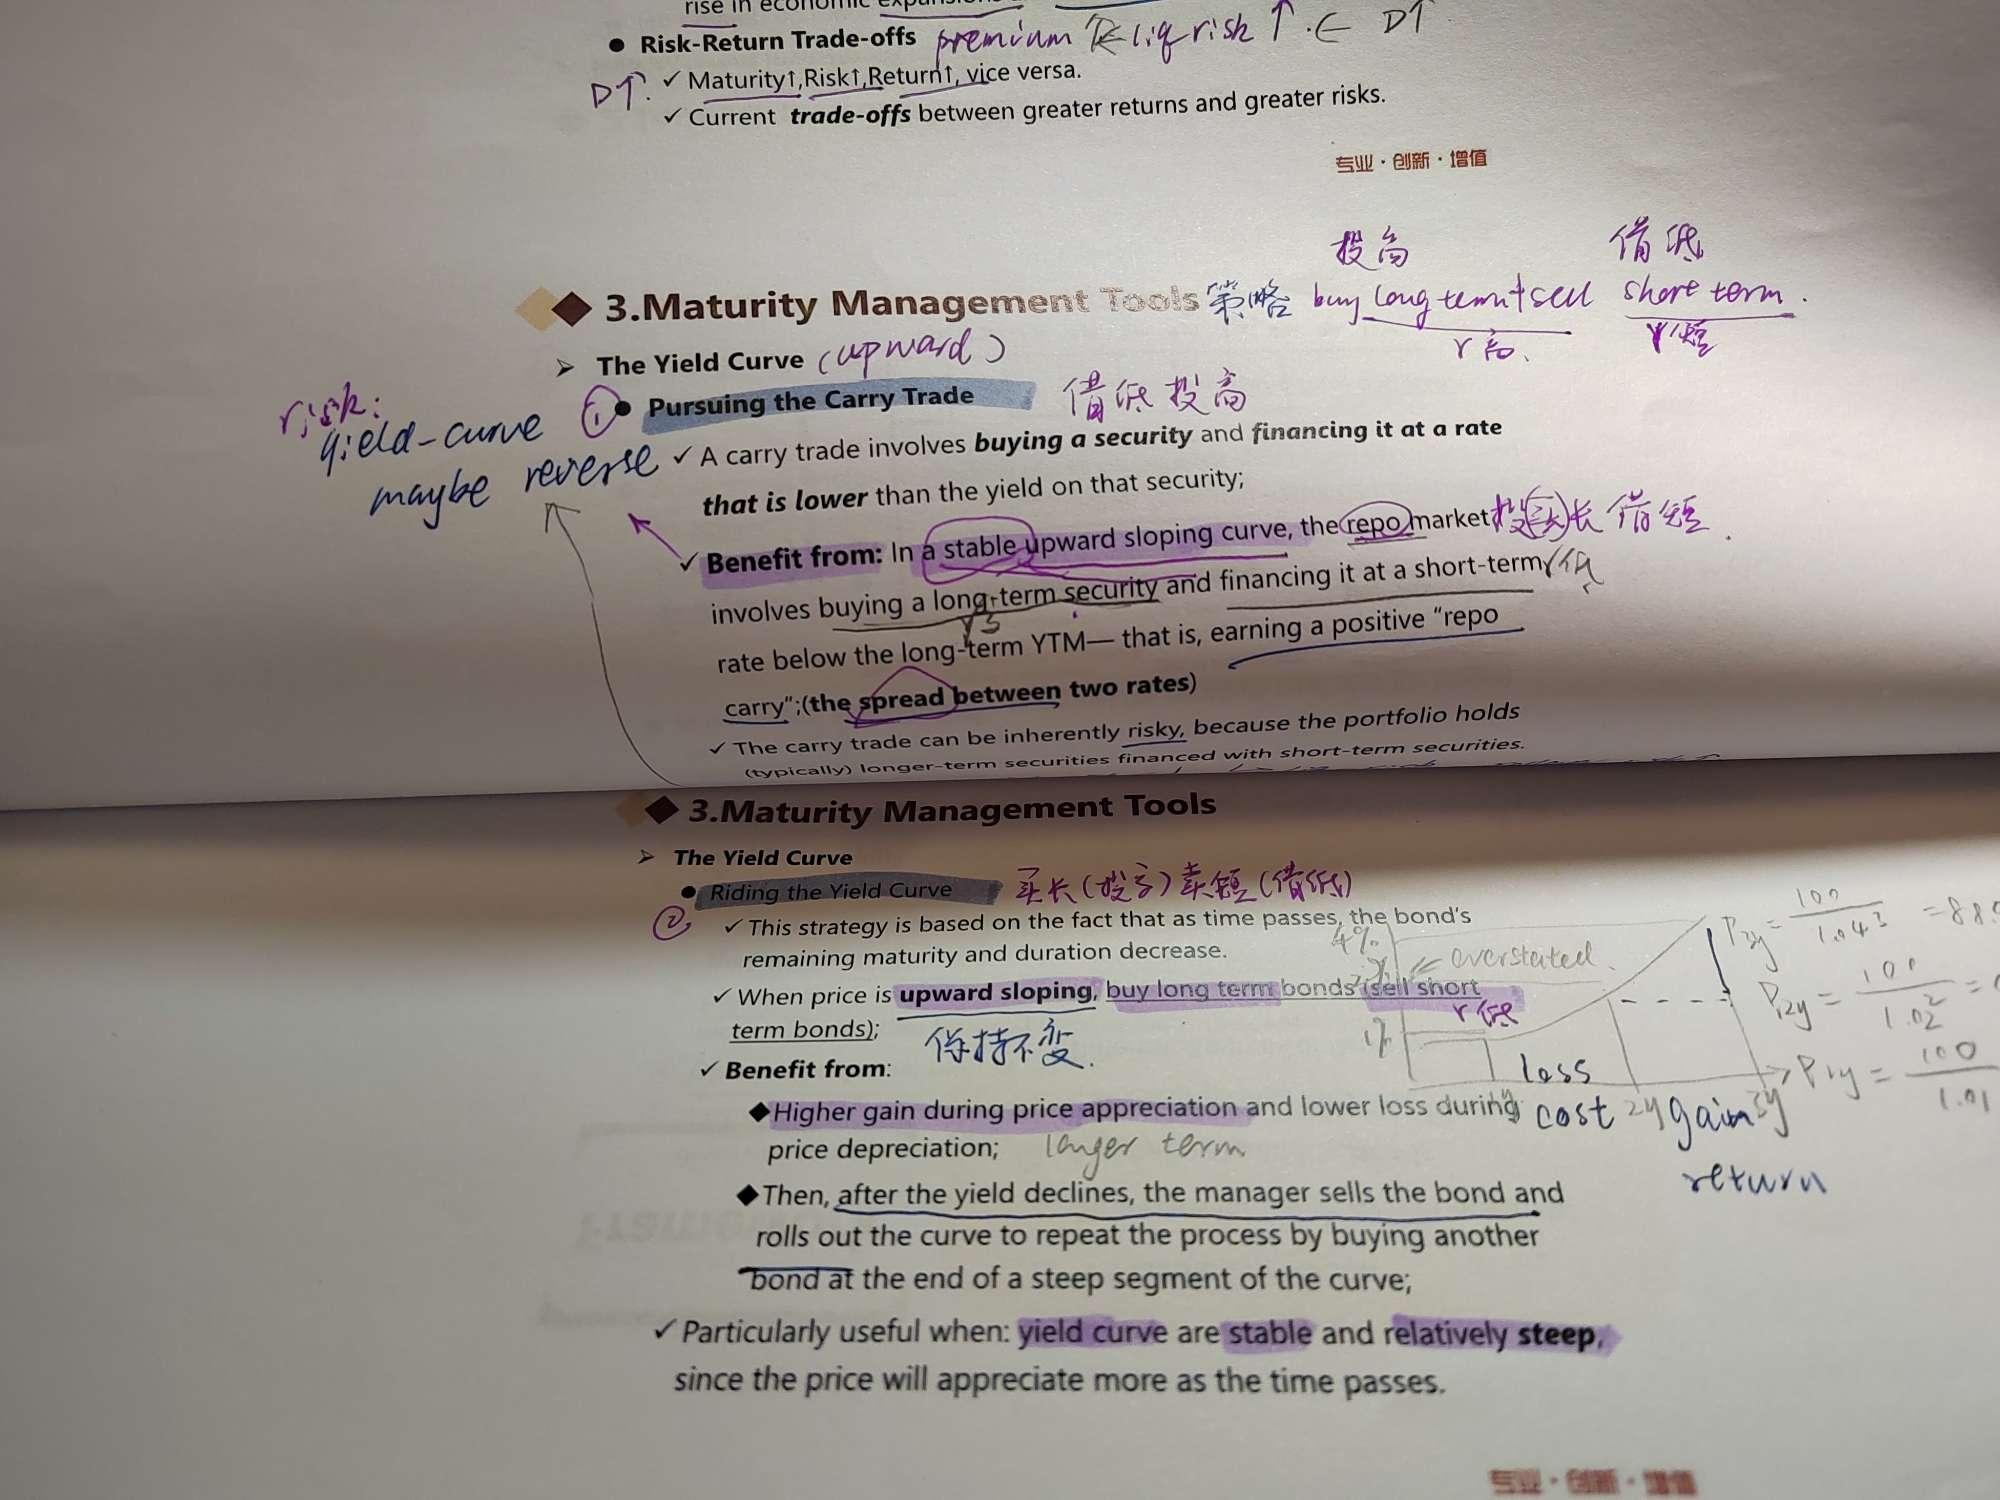 rise in economic expansions
● Risk-Return Trade-offs premium liq risk ↑ D↑
D↑. ✓ Maturity↑,Risk↑,Return↑, vice versa.
✓ Current trade-offs between greater returns and greater risks.
专业·创新·增值
投高 借低
3.Maturity Management Tools 策略 buy long term + sell short term.
r高. r短
➢ The Yield Curve (upward)
risk: ① ● Pursuing the Carry Trade 借低投高
yield-curve
maybe reverse
✓ A carry trade involves buying a security and financing it at a rate
that is lower than the yield on that security;
✓ Benefit from: In a stable upward sloping curve, the repo market 长借短.
involves buying a long-term security and financing it at a short-term
rate below the long-term YTM— that is, earning a positive “repo
carry”;(the spread between two rates)
✓ The carry trade can be inherently risky, because the portfolio holds
(typically) longer-term securities financed with short-term securities.
3.Maturity Management Tools
➢ The Yield Curve
② ● Riding the Yield Curve 买长(投高)卖短(借低)
✓ This strategy is based on the fact that as time passes, the bond's
remaining maturity and duration decrease.
✓ When price is upward sloping, buy long term bonds (sell short
term bonds); r低
保持不变.
✓ Benefit from:
◆Higher gain during price appreciation and lower loss during
price depreciation; longer term
◆Then, after the yield declines, the manager sells the bond and
rolls out the curve to repeat the process by buying another
bond at the end of a steep segment of the curve;
✓ Particularly useful when: yield curve are stable and relatively steep,
since the price will appreciate more as the time passes.
4% overstated.
1%
loss
cost 2y gain 3y
return
P3y = 100 / 1.04³ = 88.
P2y = 100 / 1.02² =
P1y = 100 / 1.01
专业·创新·增值